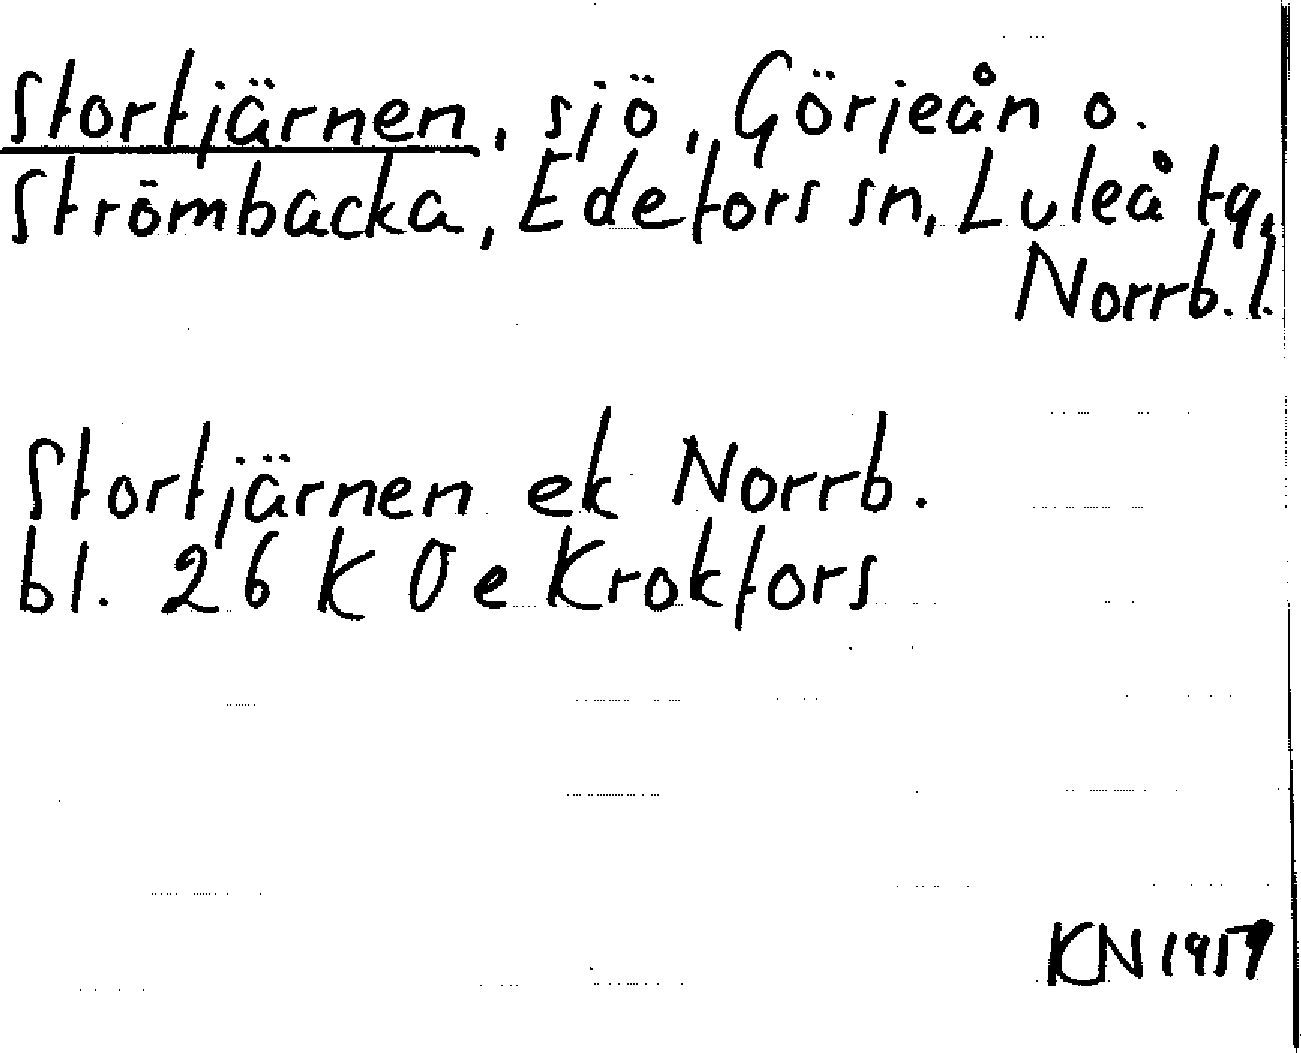 Stortjärnen, sjö, Görjeån o.
Strömbacka, Edefors sn, Luleå tg,
Norrb. l.
Stortjärnen ek Norrb.
bl. 26 K O e Krokfors
KN 1959